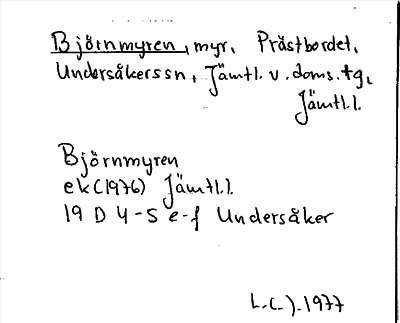 Björnmyren, myr, Prästbordet,
Undersåkerssn, Jämtl. v. doms. tg,
Jämtl.l.
Björnmyren
ek(1976) Jämtl.l.
19 D 4-5 e-f Undersåker
L.C.J. 1977